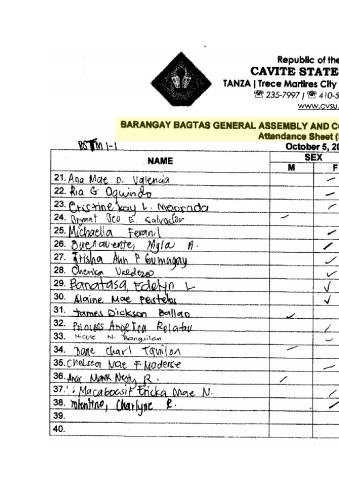 Republic of the
CAVITE STATE
TANZA | Trece Martires City
☏ 235-7997 | ☏ 410-5
www.cvsu.
BARANGAY BAGTAS GENERAL ASSEMBLY AND CO
Attendance Sheet (S
BSTM 1-1
October 5, 20
NAME SEX
M F
21. Ana Mae D. Valencia
22. Ria G
23. Cristine Kay L.
24. Bryant Jeo E. Salvador
25. Michaella
26. Buenavente, Myla A.
27. Irisha Ann P Gumangay
28. Cherilyn Valdezo
29. Banatasa, Edelyn L
30. Alaine Mae
31. James Dickson Ballao
32. Princess Angelica
33. Nicole N. Banguilan
34. Dane Charl
35. Chelsea Mae F Maderse
36. Mark R.
37. Macabbasit Ericka Mae N.
38. Tolentino, Charlyne R.
39.
40.